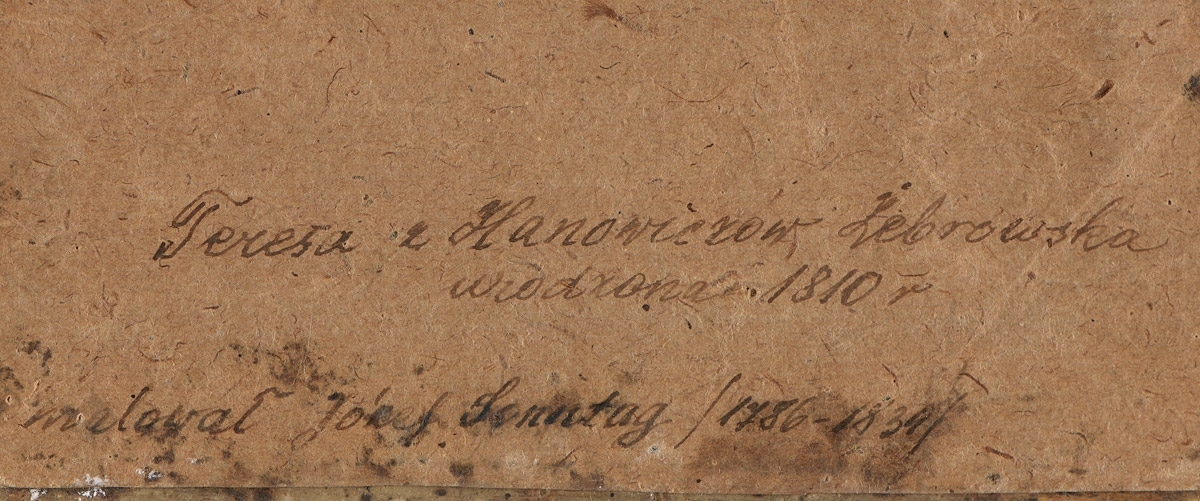 Teresa z Hanowiczów Żebrowska
urodzona 1810 r
malował Józef Sonntag /1786-1834/